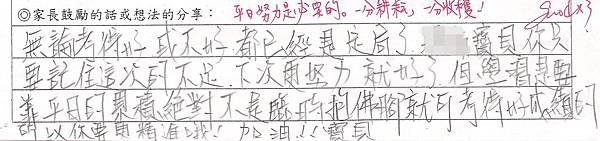 ◎家長鼓勵的話或想法的分享：平日努力是必要的。一分耕耘，一分收穫！ Good x3
無論考得好或不好都已經是定局了 寶貝你只
要記住這次的不足下次更努力就好了 但學習是要
靠平日的累積絕對不是臨時抱佛腳就可考得好成績的
所以你要更精進哦！加油!!寶貝